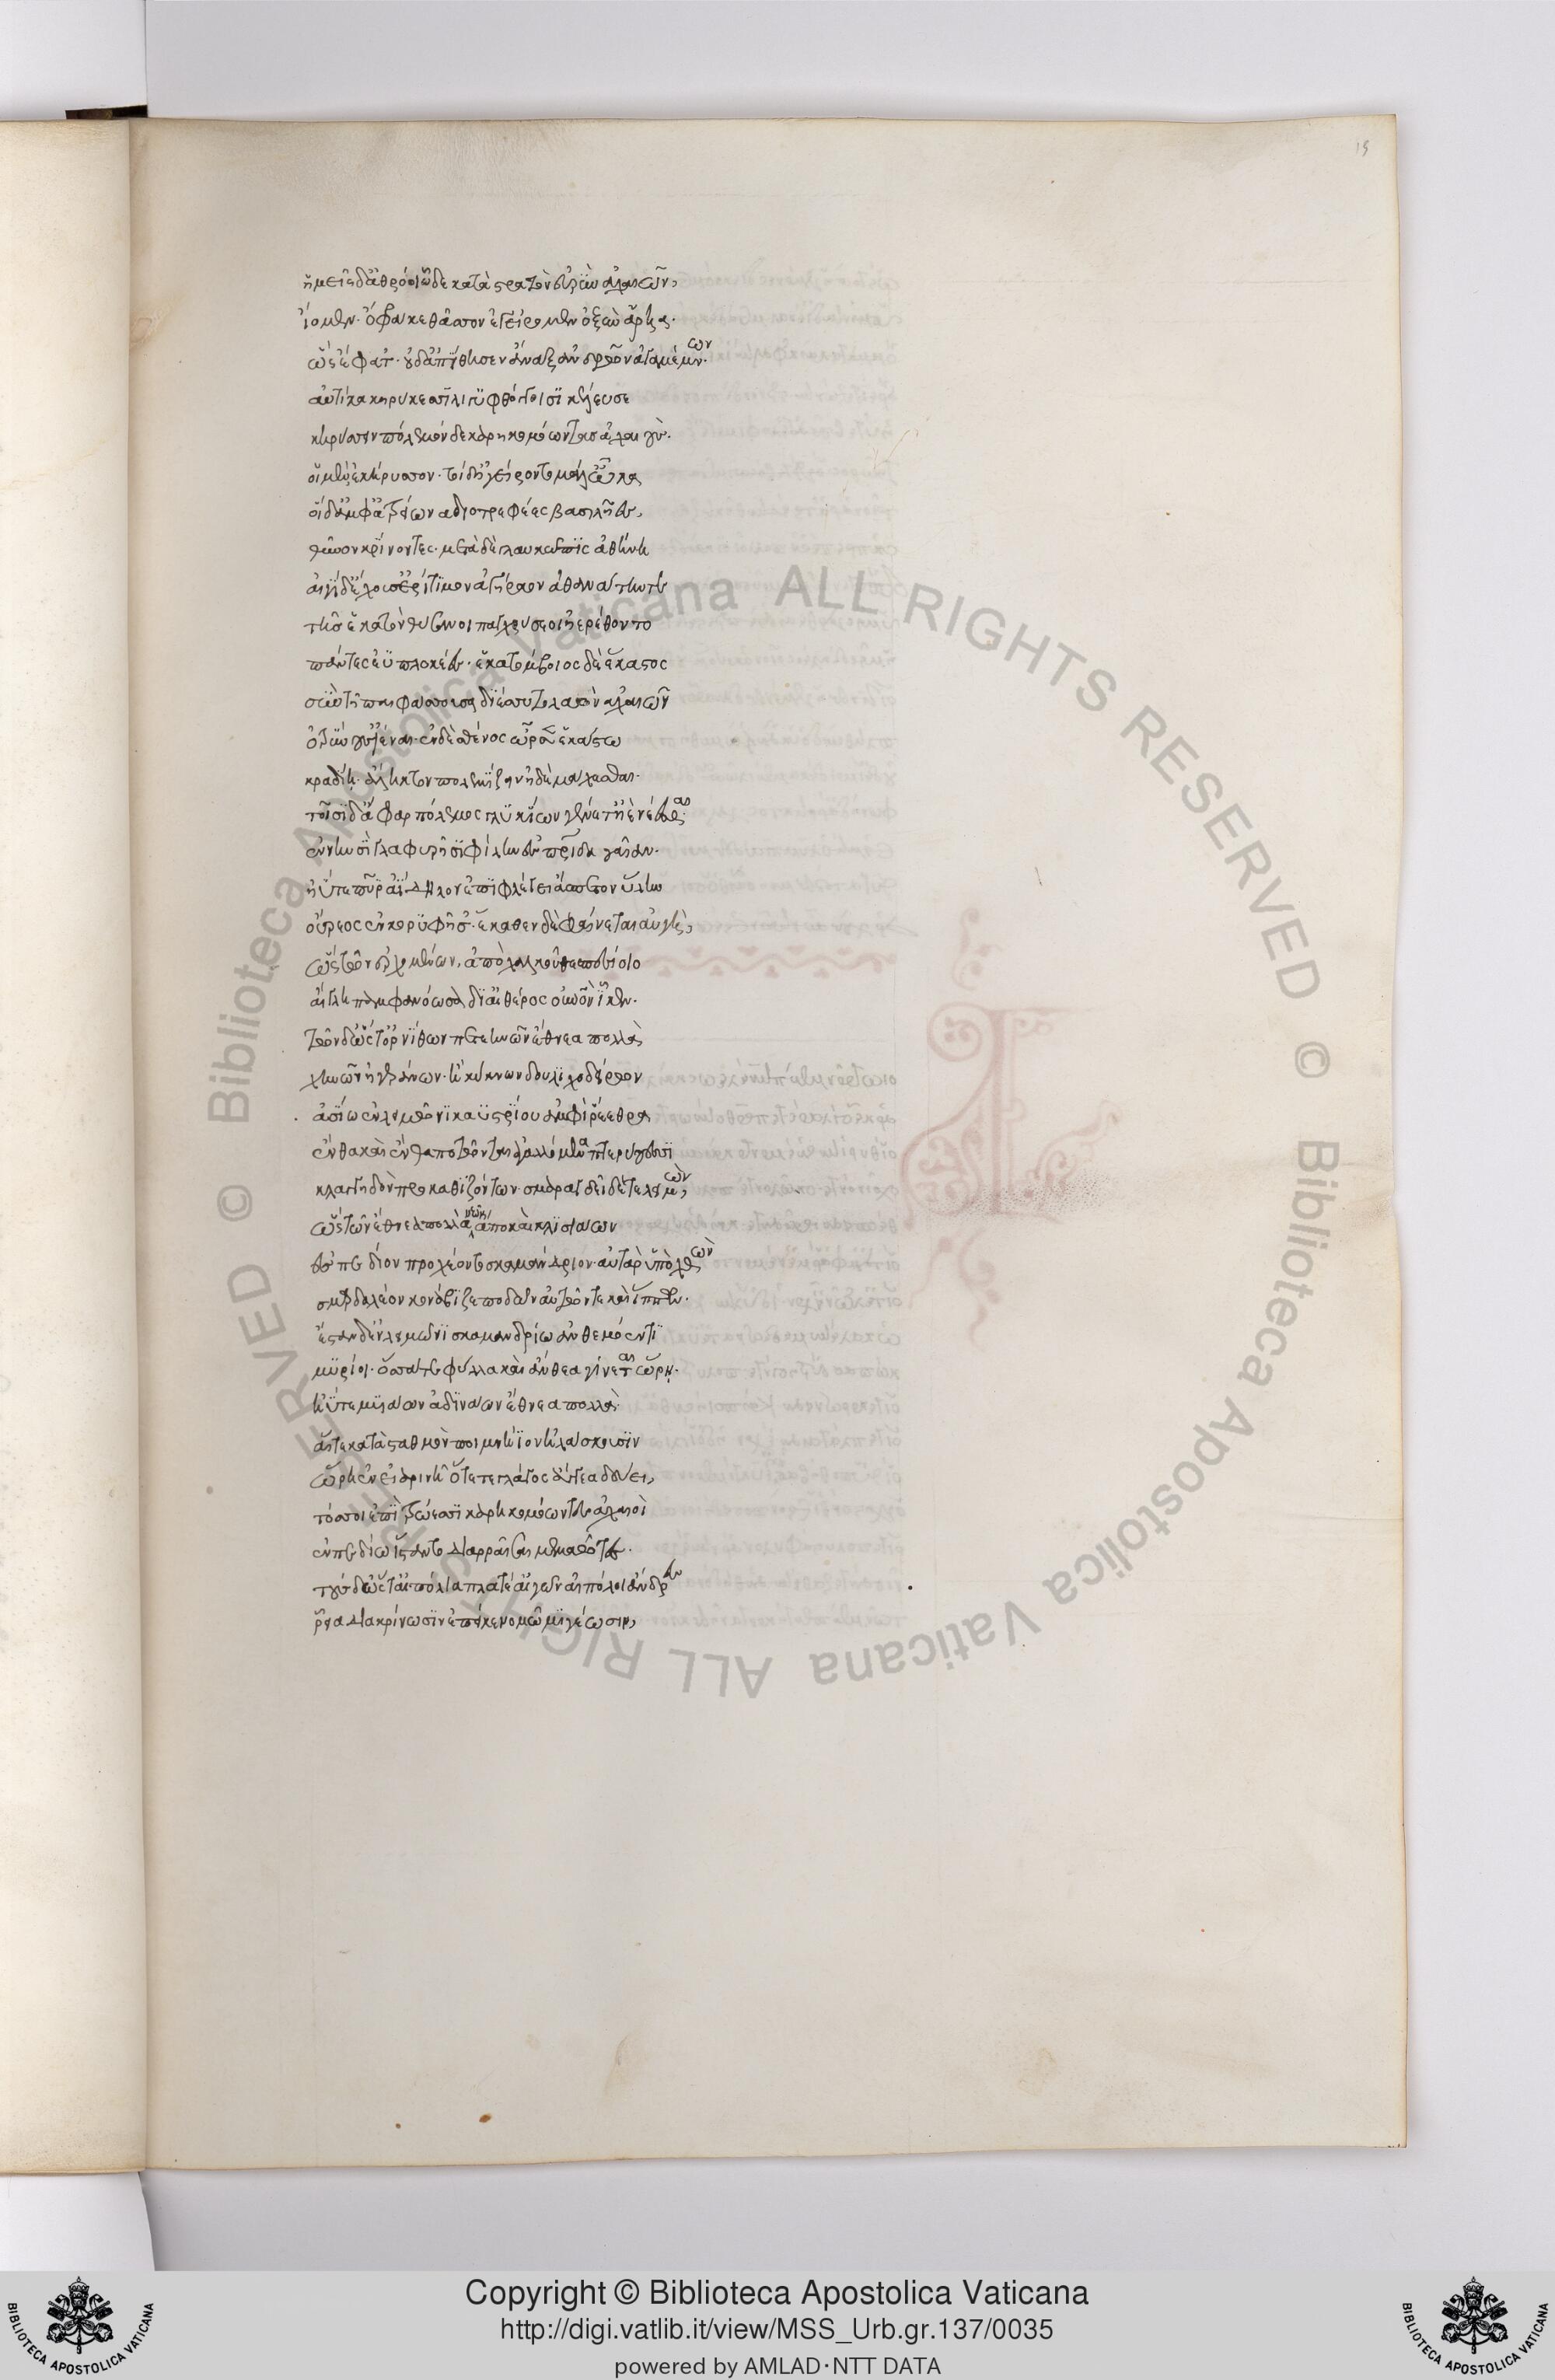 ἡμεῖς δ' ἀθρόοι ὧδε κατὰ στρατὸν εὐρὺν ἀχαιῶν,
ἴομεν· ὄφρα κε θᾶσσον ἐγείρομεν ὀξὺν ἄρηα·
ὣς ἔφατ'· οὐδ' ἀπίθησεν ἄναξ ἀνδρῶν ἀγαμέμνων·
αὐτίκα κηρύκεσσι λιγυφθόγγοισι κέλευσε
κηρύσσειν πόλεμον δε κάρη κομόωντας ἀχαιούς·
οἱ μὲν ἐκήρυσσον· τοὶ δ' ἠγείροντο μάλ' ὦκα
οἱ δ' ἀμφ' ἀτρείωνα διοτρεφέες βασιλῆες,
θῦνον κρίνοντες· μετὰ δὲ γλαυκῶπις ἀθήνη
αἰγίδ' ἔχουσ' ἐρίτιμον ἀγήραον ἀθανάτην τε
τῆς ἑκατὸν θύσανοι παγχρύσεοι ἠερέθοντο
πάντες ἐϋπλοκέες· ἑκατόμβοιος δὲ ἕκαστος
σὺν τῇ παιφάσσουσα διέσσυτο λαὸν ἀχαιῶν
ὀτρύνουσ' ἰέναι· ἐν δὲ σθένος ὦρσεν ἑκάστω
κραδίῃ· ἄληκτον πολεμίζειν ἠδὲ μάχεσθαι·
τοῖσι δ' ἄφαρ πόλεμος γλυκίων γένετ' ἠὲ νέεσθαι·
ἐν νηυσὶ γλαφυρῇσι φίλην ἐς πατρίδα γαῖαν·
ἠΰτε πῦρ ἀΐδηλον ἐπιφλέγει ἄσπετον ὕλην
οὔρεος ἐν κορυφῇσ'· ἕκαθεν δὲ φαίνεται αὐγὴ,
ὣς τῶν ἐρχομένων, ἀπὸ χαλκοῦ θεσπεσίοιο
αἴγλη παμφανόωσα δι' αἰθέρος οὐρανὸν ἷκεν·
τῶν δ' ὥς τ' ὀρνίθων πετεηνῶν ἔθνεα πολλὰ
χηνῶν ἢ γεράνων· ἢ κύκνων δουλιχοδείρων
ἀσίω ἐν λειμῶνι καϋστρίου ἀμφὶ ῥέεθρα
ἔνθα καὶ ἔνθα ποτῶνται ἀγαλλόμενα πτερύγεσσι
κλαγγηδὸν προκαθιζόντων· σμαραγεῖ δέ τε λειμὼν,
ὣς τῶν ἔθνεα πολλὰ νεῶν ἄπο καὶ κλισιάων
ἐς πεδίον προχέοντο σκαμάνδριον· αὐτὰρ ὑπὸ χθὼν
σμερδαλέον κονάβιζε ποδῶν αὐτῶν τε καὶ ἵππων·
ἔσταν δ' ἐν λειμῶνι σκαμανδρίω ἀνθεμόεντι
μυρίοι· ὅσσά τε φύλλα καὶ ἄνθεα γίνεται ὥρῃ·
ἠΰτε μυιάων ἁδινάων ἔθνεα πολλὰ·
αἵ τε κατὰ σταθμὸν ποιμνήϊον ἠλάσκουσιν
ὥρῃ ἐν εἰαρινῇ ὅτε τε γλάγος ἄγγεα δεύει,
τόσσοι ἐπὶ τρώεσσι κάρη κομόωντες ἀχαιοὶ
ἐν πεδίω ἵσταντο διαρραῖσαι μεμαῶτες·
τοὺς δ' ὥς τ' αἰπόλια πλατέ' αἰγῶν αἰπόλοι ἄνδρες
ῥεῖα διακρίνωσιν ἐπεί κε νομῷ μιγέωσιν,
Copyright © Biblioteca Apostolica Vaticana
http://digi.vatlib.it/view/MSS_Urb.gr.137/0035
powered by AMLAD·NTT DATA